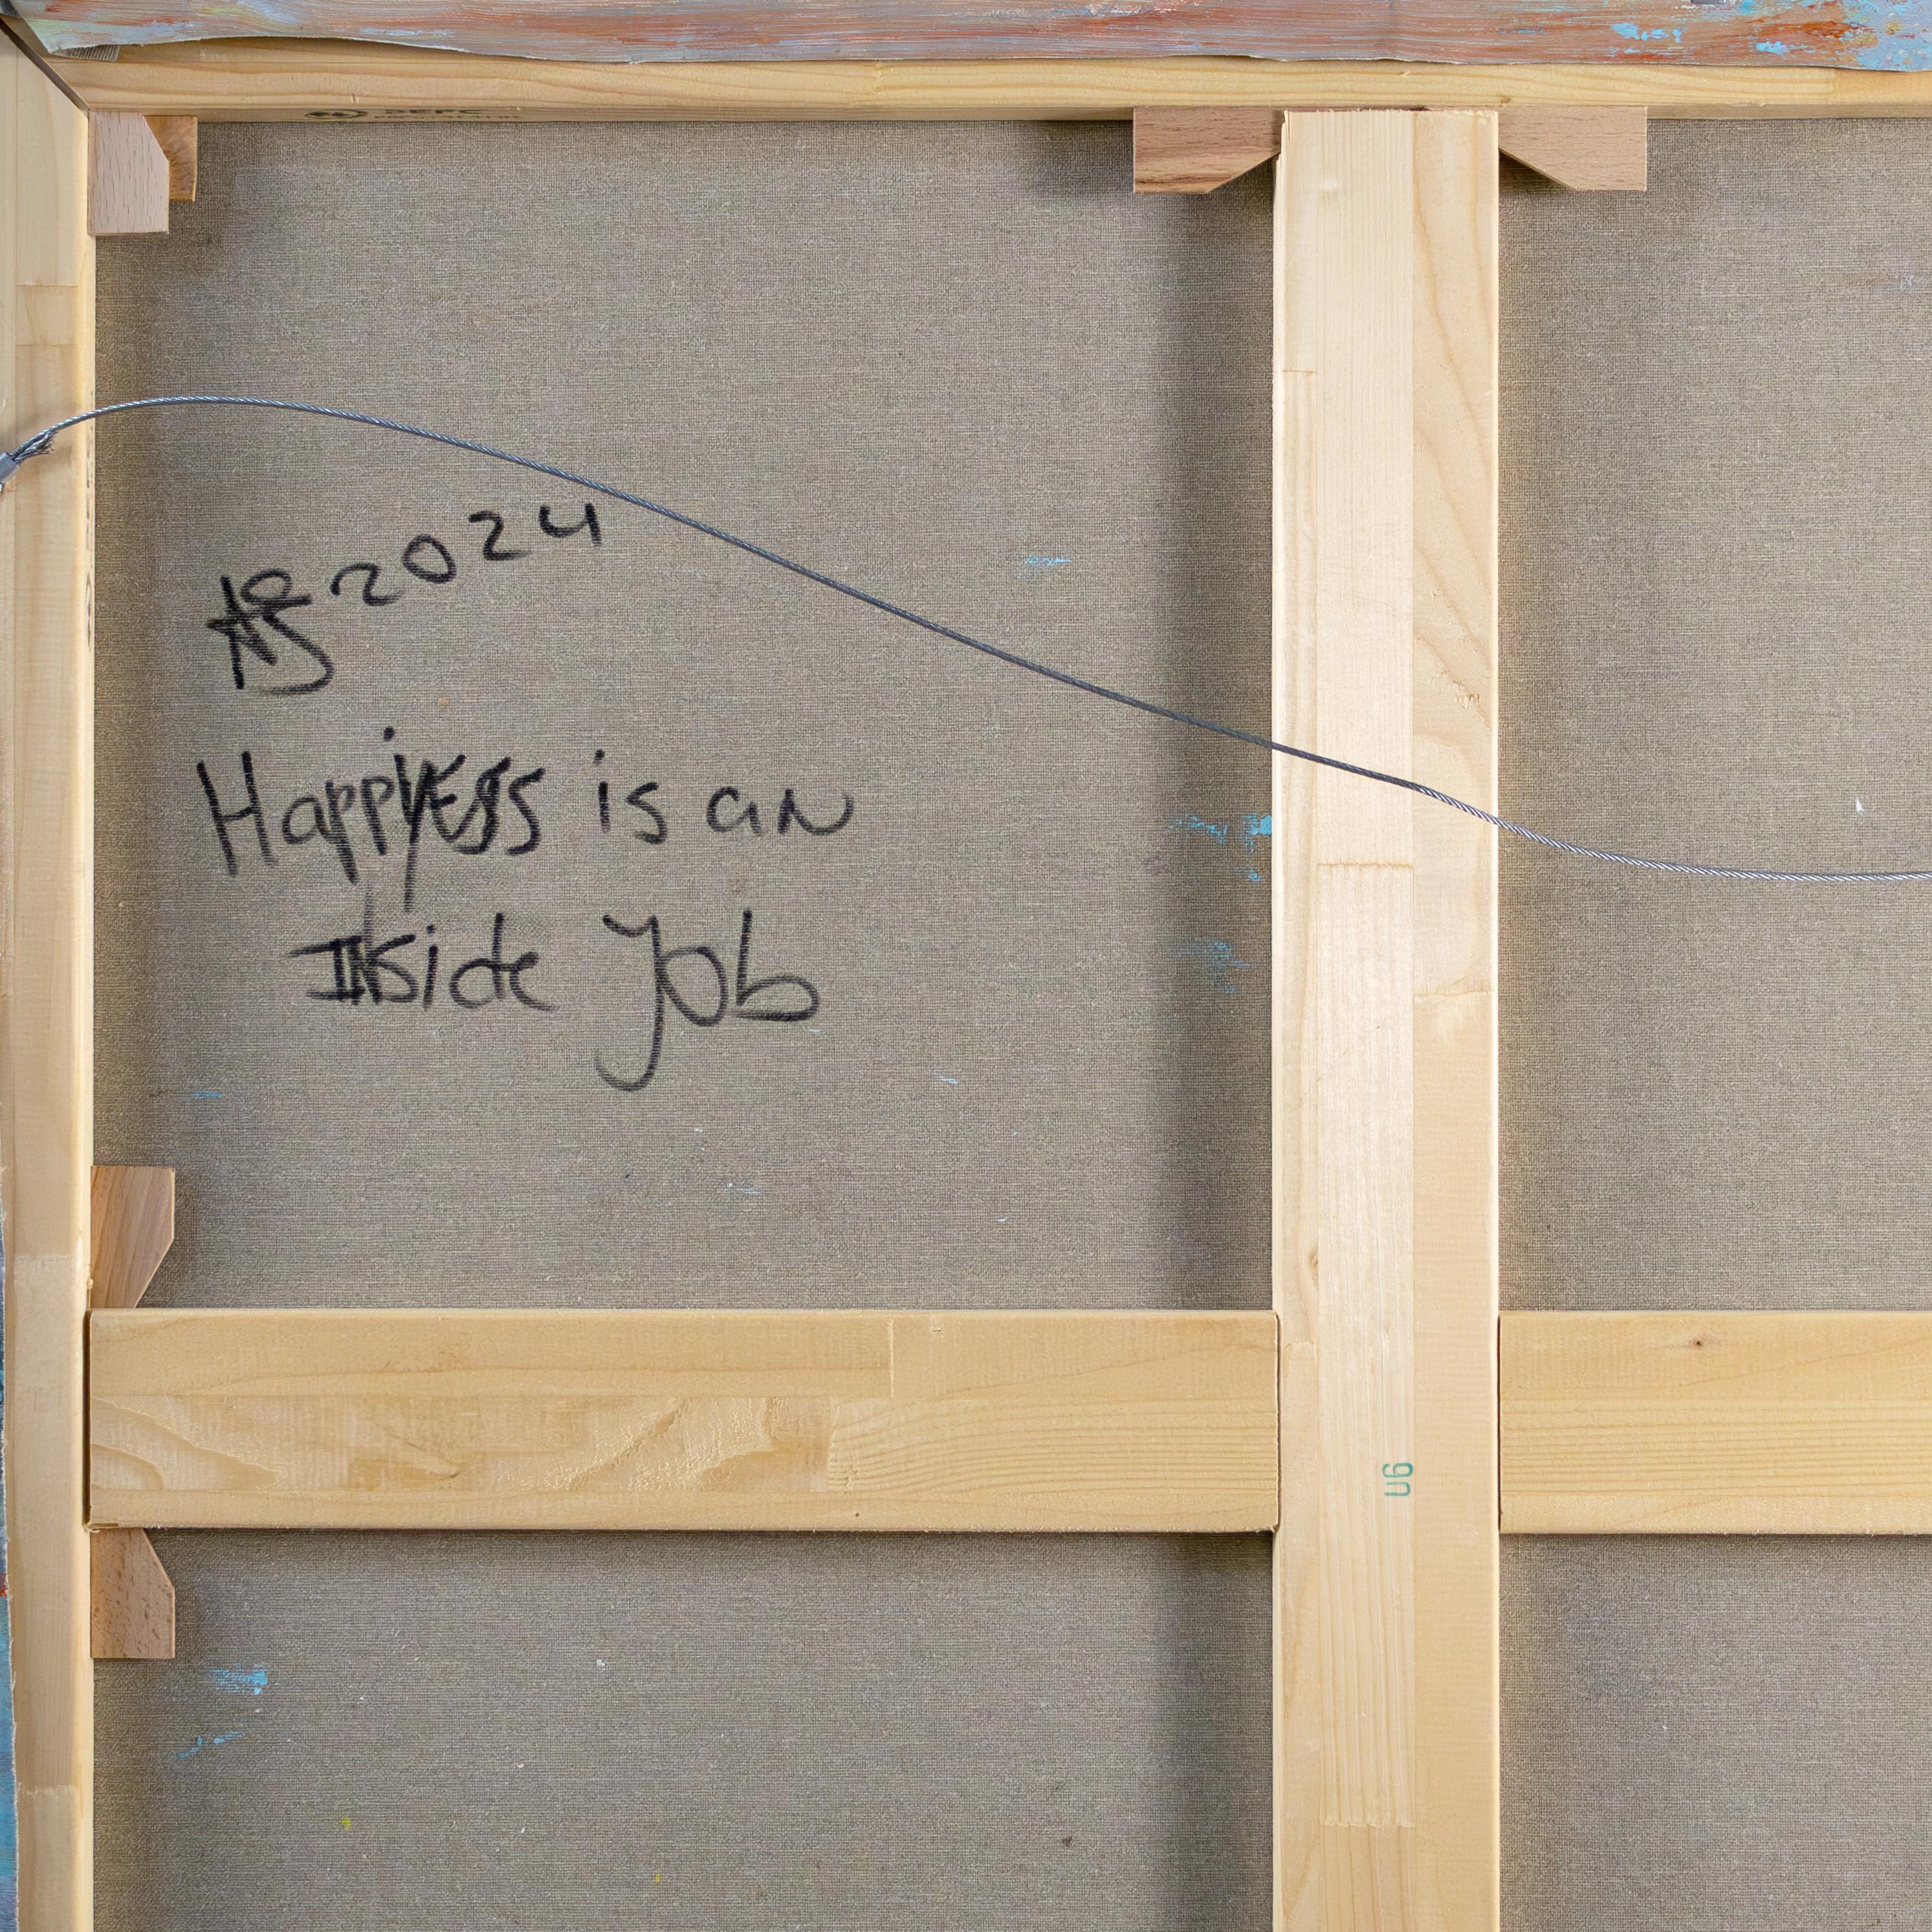 AS 2024
Happiness is an
Inside Job
90